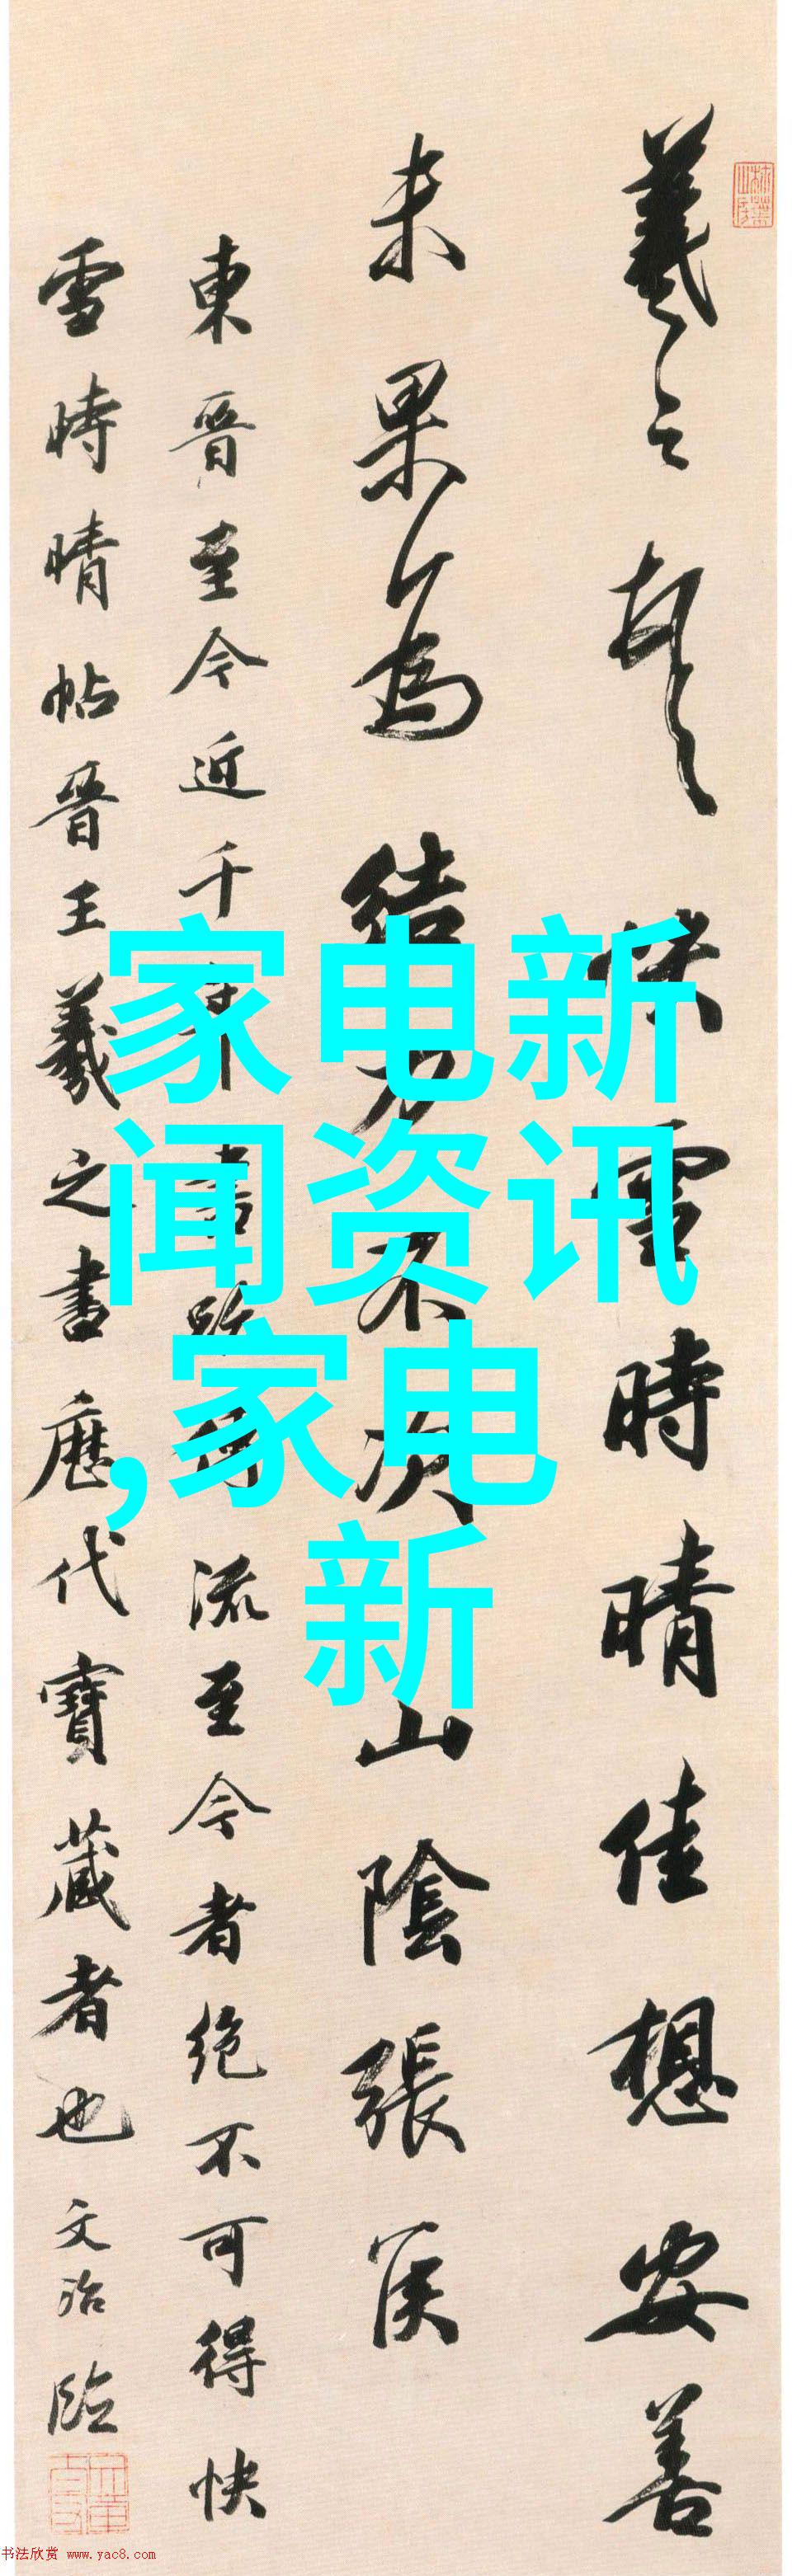 羲之頓首快雪時晴佳想安善
未果為結力不次山陰張侯
東晉至今近千年書跡傳流至今者絕不可得快
雪時晴帖晉王羲之書歷代寶藏者也文治臨
家电新
闻资讯
,家电
新
书法欣赏 www.yac8.com